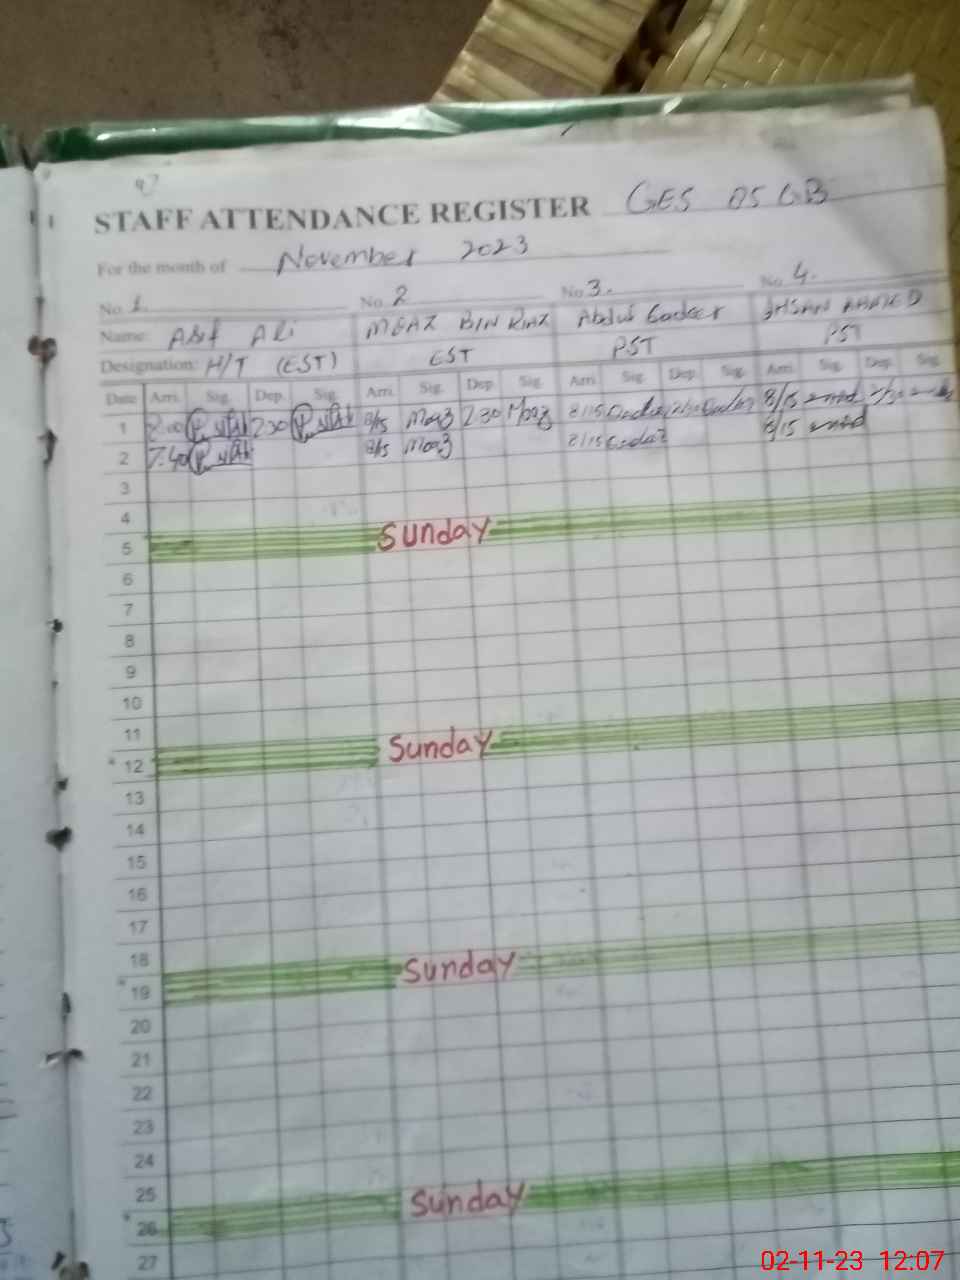 97
STAFF ATTENDANCE REGISTER GES 05 GB
For the month of November 2023
No 1. No 2 No 3. No 4.
Name: Asif Ali MEAZ BIN RIAZ Abdul Qadeer AHSAN AHMED
Designation: H/T (EST) EST PST PST
Date Arri. Sig. Dep. Sig. Arri. Sig. Dep. Sig. Arri. Sig. Dep. Sig. Arri. Sig. Dep. Sig.
1 8.00 2.30 8/15 Moaz 2.30 Moaz 8/15 8/15
2 7.40 8/15 Moaz 8/15 8/15
3
4
5 Sunday
6
7
8
9
10
11
12 Sunday
13
14
15
16
17
18
19 Sunday
20
21
22
23
24
25
26 Sunday
27
02-11-23 12:07